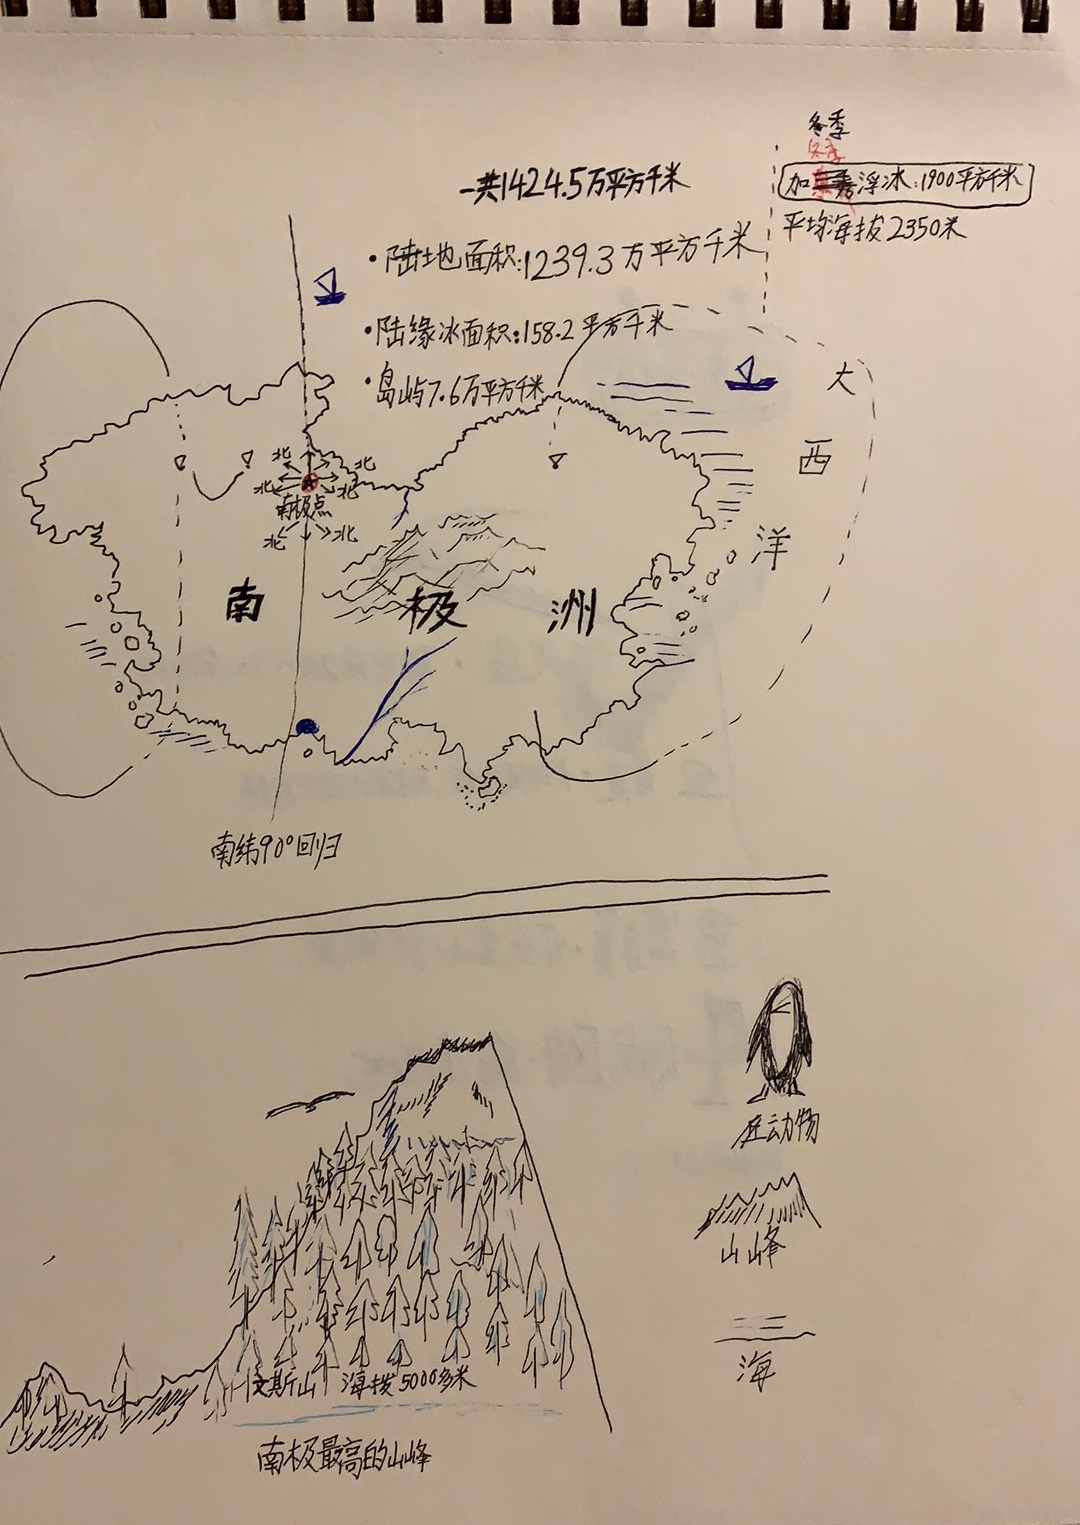 冬季
冬季
一共1424.5万平方千米
加 浮冰:1900平方千米
平均海拔2350米
•陆地面积:1239.3万平方千米
•陆缘冰面积:158.2平方千米
•岛屿7.6万平方千米
大
西
洋
北
北
北
北
南极点
北
北
南 极 洲
南纬90°回归
动物
山峰
海
文斯山 海拔5000多米
南极最高的山峰